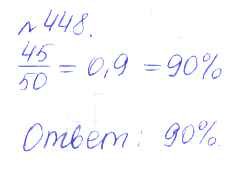 №448.
45/50 = 0,9 = 90%
Ответ: 90%